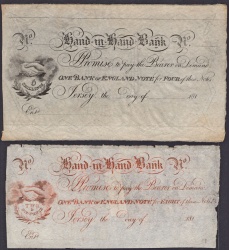 No Hand-in-Hand Bank No
I Promise to pay the Bearer on Demand
ONE BANK OF ENGLAND NOTE for FOUR of these Notes
Jersey the Day of 181
Ent.
No Hand-in-Hand Bank No
I Promise to pay the Bearer on Demand
ONE BANK OF ENGLAND NOTE for EIGHT of these Notes
Jersey the Day of 181
Ent.